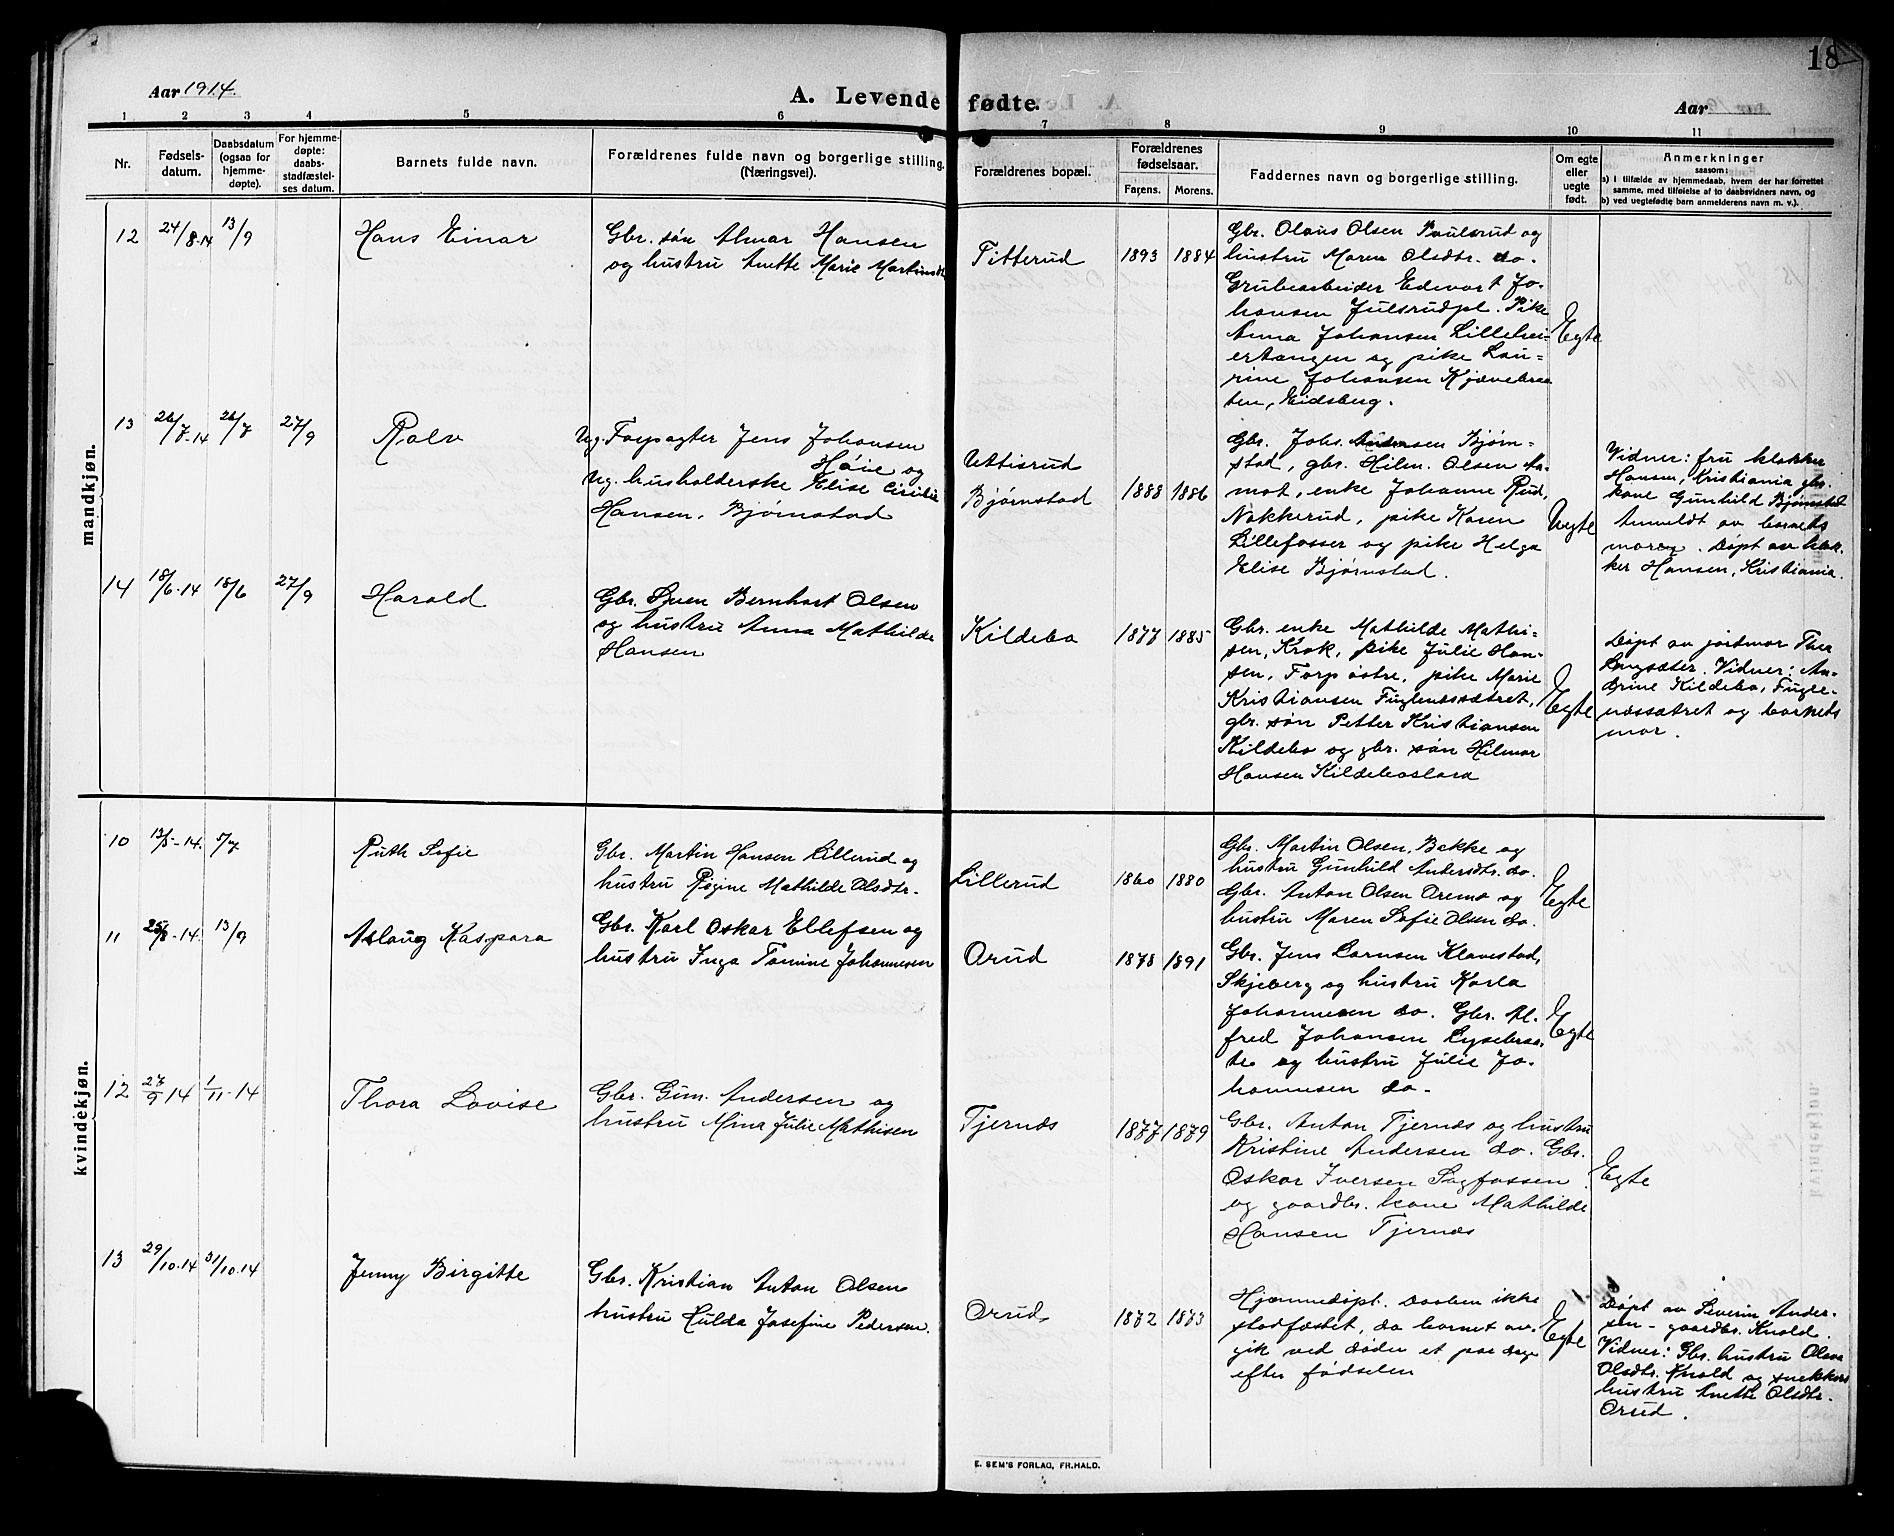 18
Aar 1914.
A. Levende fødte.
Aar
1 2 3 4 5 6 7 8 9 10 11
Nr.
Fødsels-
datum.
Daabsdatum
(ogsaa for
hjemme-
døpte).
For hjemme-
døpte:
daabs-
stadfæstel-
ses datum.
Barnets fulde navn.
Forældrenes fulde navn og borgerlige stilling.
(Næringsvei).
Forældrenes bopæl.
Forældrenes
fødselsaar.
Farens. Morens.
Faddernes navn og borgerlige stilling.
Om egte
eller
uegte
født.
Anmerkninger
saasom:
a) i tilfælde av hjemmedaab, hvem der har forrettet
samme, med tilføielse af to daabsvidners navn, og
b) ved uegtefødte barn anmelderens navn m. v.).
mandkjøn.
12 24/8.14 13/9
Hans Einar
Gbr. søn Almar Hansen
og hustru Anette Marie Martinsdtr
Titterud
1893 1884
Gbr. Olaus Olsen Paulsrud og
hustru Maren Olsdtr. do.
Grubearbeider Edvart Jo-
hansen Julsrudpl. Pike
Anna Johansen Lillehei-
ertangen og pike Lau-
rine Johansen Kjævebraa-
ten, Eidsberg.
Egte
13 26/7.14 26/7 27/9
Rolv
Ug. Forpagter Jens Johansen
Høie og
Ug. husholderske Elise Cicilie
Hansen, Bjørnstad
Uttisrud
Bjørnstad
1888 1886
Gbr. Johs. Andersen Bjørn-
stad, gbr. Hilm. Olsen Aa-
mot, enke Johanne Rud,
Nakkerud, pike Karen
Lillefosser og pike Helga
Elise Bjørnstad.
Uegte
Vidner: fru klokker
Hansen, Kristiania gbr.
kone Gunhild Bjørnstad
Anmeldt av barnets
moren. Døpt av klok-
ker Hansen, Kristiania.
14 18/6.14 18/6 27/9
Harald
Gbr. Sven Bernhart Olsen
og hustru Anna Mathilde
Hansen
Kildebo
1877 1885
Gbr. enke Mathilde Mathi-
sen, Krok, pike Julie Han-
sen, Torp østre, pike Marie
Kristiansen Fuglenessætret,
gbr. søn Petter Kristiansen
Kildebo og gbr. søn Hilmar
Hansen Kildebo
Egte
Døpt av jordmor Thea
Langsæter. Vidner: An-
drine Kildebo, Fugle-
næssætret og barnets
mor.
kvindekjøn.
10 13/5-14. 5/7
Ruth Sofie
Gbr. Martin Hansen Lillerud og
hustru Regine Mathilde Olsdtr.
Lillerud
1860 1880
Gbr. Martin Olsen, Bakke og
hustru Gunhild Andersdtr. do.
Gbr. Anton Olsen Oremo og
hustru Maren Sofie Olsen do.
Egte
11 25/8-14. 13/9
Aslaug Kaspara
Gbr. Karl Oskar Ellefsen og
hustru Inga Tomine Johannesen
Orud
1878 1891
Gbr. Jens Larnsen Klavestad,
Skjeberg og hustru Karla
Johannesen do. Gbr. Al-
fred Johansen Lysebraa-
te og hustru Julie Jo-
hannesen do.
Egte
12 27/9 14 1/11.14
Thora Lovise
Gbr. Gun. Andersen og
hustru Mina Julie Mathisen
Tjernæs
1877 1879
Gbr. Anton Tjernæs og hustru
Kristine Andersen do. Gbr.
Oskar Iversen Sagfossen
og gaardbr. kone Mathilde
Hansen Tjernæs
Egte
13 29/10.14 31/10.14
Jenny Birgitte
Gbr. Kristian Anton Olsen
hustru Hulda Josefine Pedersen.
Orud
1872 1873
Hjemmedøpt. Daaben ikke
stadfæstet, da barnet av-
gik ved døden et par dage
efter fødselen
Egte
Døpt av Severin Ander-
sen - gaardbr. Knold.
Vidner: Gbr. hustru Olava
Olsdtr. Knold og snekkers
hustru Anette Olsdtr.
Orud.
E. SEM'S FORLAG, FR.HALD.